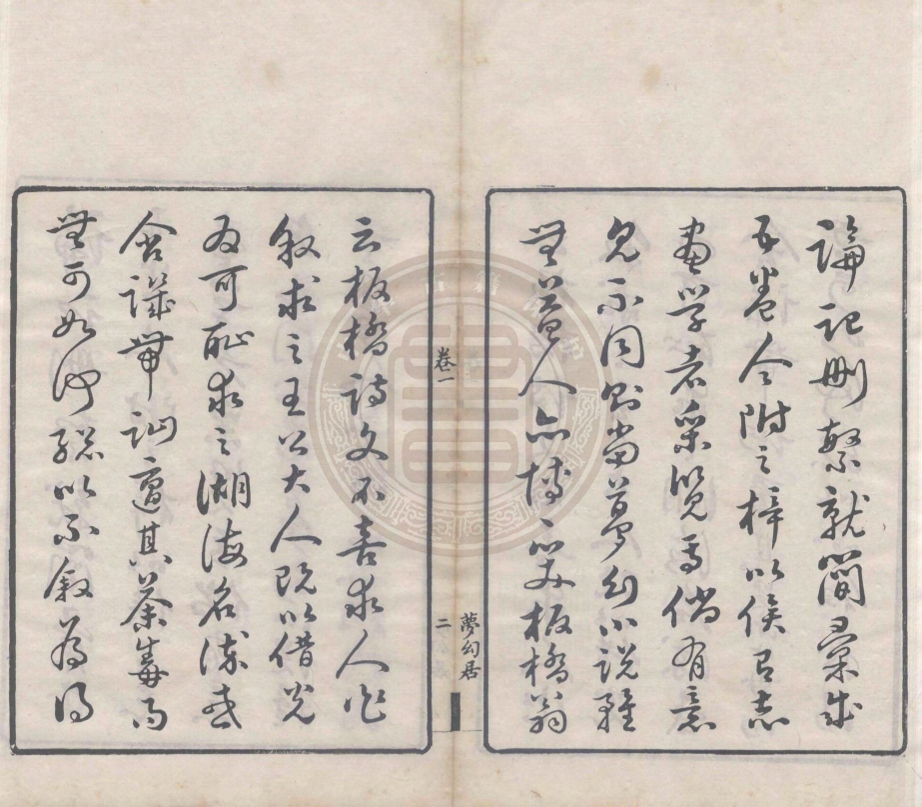 論記刪繁就簡彙成
五卷今附之梓以俟有志
畫學者采覽焉倘有意
見不同則當夢幻小說雖
無益人亦博一笑板橋翁
卷一
二
夢幻居
云板橋詩文不喜求人作
叙求之王公大人既以借光
為可恥求之湖海名流或
含譏帶訕遭其荼毒而
無可如何總以不叙為得